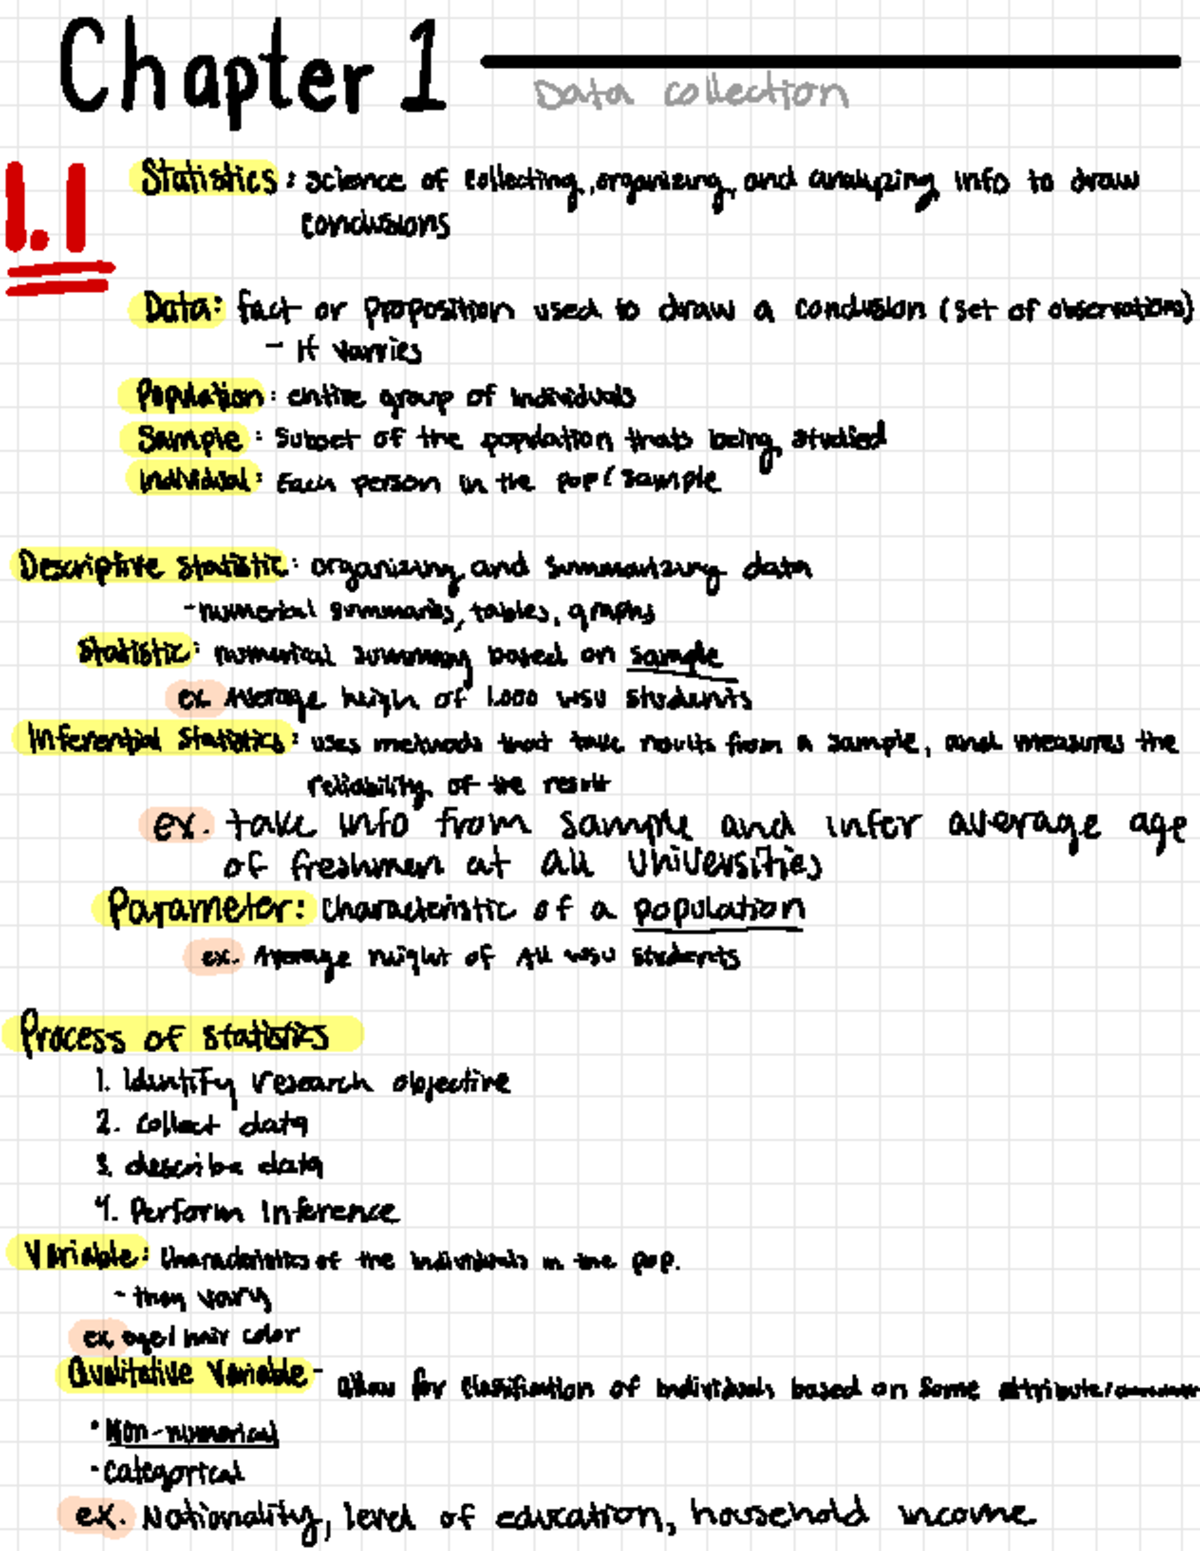 Chapter 1
Data collection
1.1
Statistics: science of collecting, organizing, and analyzing info to draw
conclusions
Data: fact or proposition used to draw a conclusion (set of observations)
- It varries
Population: entire group of individuals
Sample: Subset of the population thats being studied
Individual: Each person in the pop/sample
Descriptive Statistic: organizing and summarizing data
- numerical summaries, tables, graphs
Statistic: numerical summary based on sample
ex. Average heigh of 1,000 WSU students
Inferential Statistics: uses methods that take results from a sample, and measures the
reliability of the result
ex. take info from sample and infer average age
of freshmen at all universities
Parameter: Characteristic of a population
ex. Average height of All WSU students
Process of statistics
1. Identify research objective
2. collect data
3. describe data
4. Perform inference
Variable: Characteristics of the individuals in the pop.
- they vary
ex. age/hair color
Qualitative Variable - allow for classification of individuals based on some attribute/
• Non-numerical
- categorical
ex. Nationality, level of education, household income